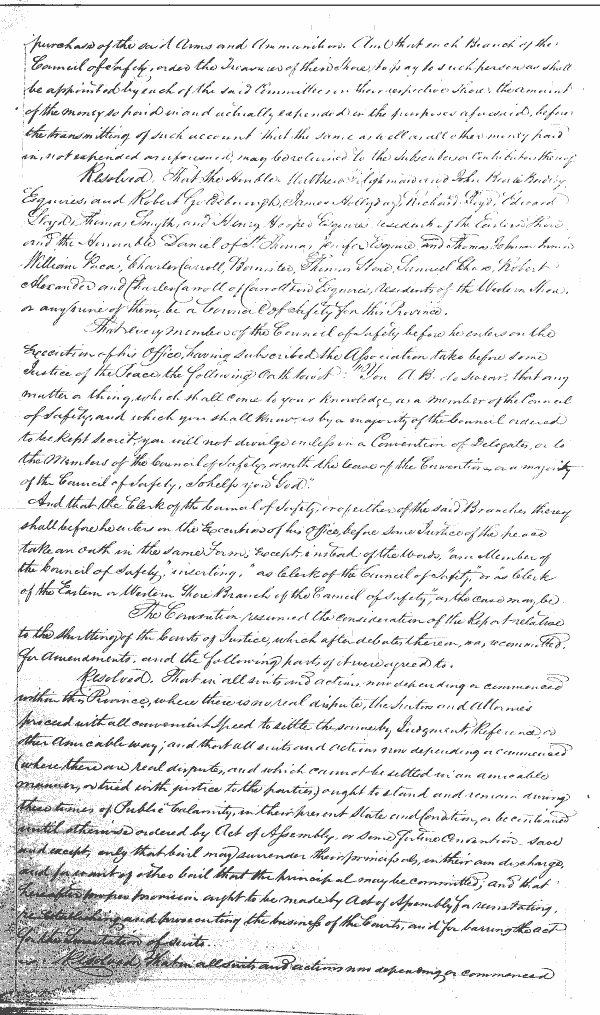 purchase of the said Arms and Ammunition. And that each Branch of the
Council of Safety, order the Treasurer of their Shore, to pay to such person as shall
be appointed by each of the said Committees on their respective Shores the amount
of the money so paid in and actually expended in the purposes aforesaid, before
the transmitting of such account that the same as well as all other money paid
in, not expended as aforesaid, may be returned to the Subscribers or Contributors thereof
Resolved. That the Honble Matthew Tilghman and John Beale Bordley
Esquires, and Robert Goldsborough, James Hollyday, Richard Lloyd, Edward
Lloyd, Thomas Smyth, and Henry Hooper Esquires residents of the Eastern Shore,
and the Honorable Daniel of St. Thomas Jenifer Esquire and Thomas Johnson Junior
William Paca, Charles Carroll, Barrister, Thomas Stone, Samuel Chase, Robert
Alexander and Charles Carroll of Carrollton Esquires, residents of the Western Shore.
or any nine of them, be a Council of Safety for this Province.
That every member of the Council of Safety before he enters on the
Execution of his Office, having subscribed the Association take before some
Justice of the Peace the following Oath to wit: "You A. B. do swear, that any
matter or thing, which shall come to your knowledge, as a member of the Council
of Safety, and which you shall know is by a majority of the Council ordered
to be kept secret, you will not divulge unless in a Convention of Delegates, or to
the Members of the Council of Safety, or with the leave of the Convention, or a majority
of the Council of Safety. So help you God."
And that the Clerk of the Council of Safety, or of either of the said Branches thereof
shall before he enters on the Execution of his Office, before some Justice of the peace
take an oath in the same Form; Except instead of the Words, "as a Member of
the Council of Safety," inserting, "as Clerk of the Council of Safety," or "as Clerk
of the Eastern or Western Shore Branch of the Council of Safety", as the case may be.
The Convention resumed the consideration of the Report relative
to the shutting of the Courts of Justice, which after debates thereon, was recommitted.
for Amendments. and the following parts of it were agreed to.
Resolved. That in all suits and actions now depending or commenced
within this Province, where there is no real dispute, the Suitors and Attornies
proceed with all convenient speed to settle the same by Judgment, Reference or
other Amicable way; and that all suits and actions now depending or commenced
(where there are real disputes, and which cannot be settled in an amicable
manner, or tried with justice to the parties) ought to stand and remain during
these times of Public Calamity, in their present State and Condition, or be continued
until otherwise ordered by Act of Assembly, or some future Convention. save
and except, only that bail may surrender their principals, in their own discharge,
and for want of other bail that the principal may be committed; and that
hereafter proper provision ought to be made by Act of Assembly for reinstating,
re-establishing and prosecuting the business of the Courts, and for barring the act
for the Limitation of suits.
Resolved. That in all suits and actions now depending or commenced